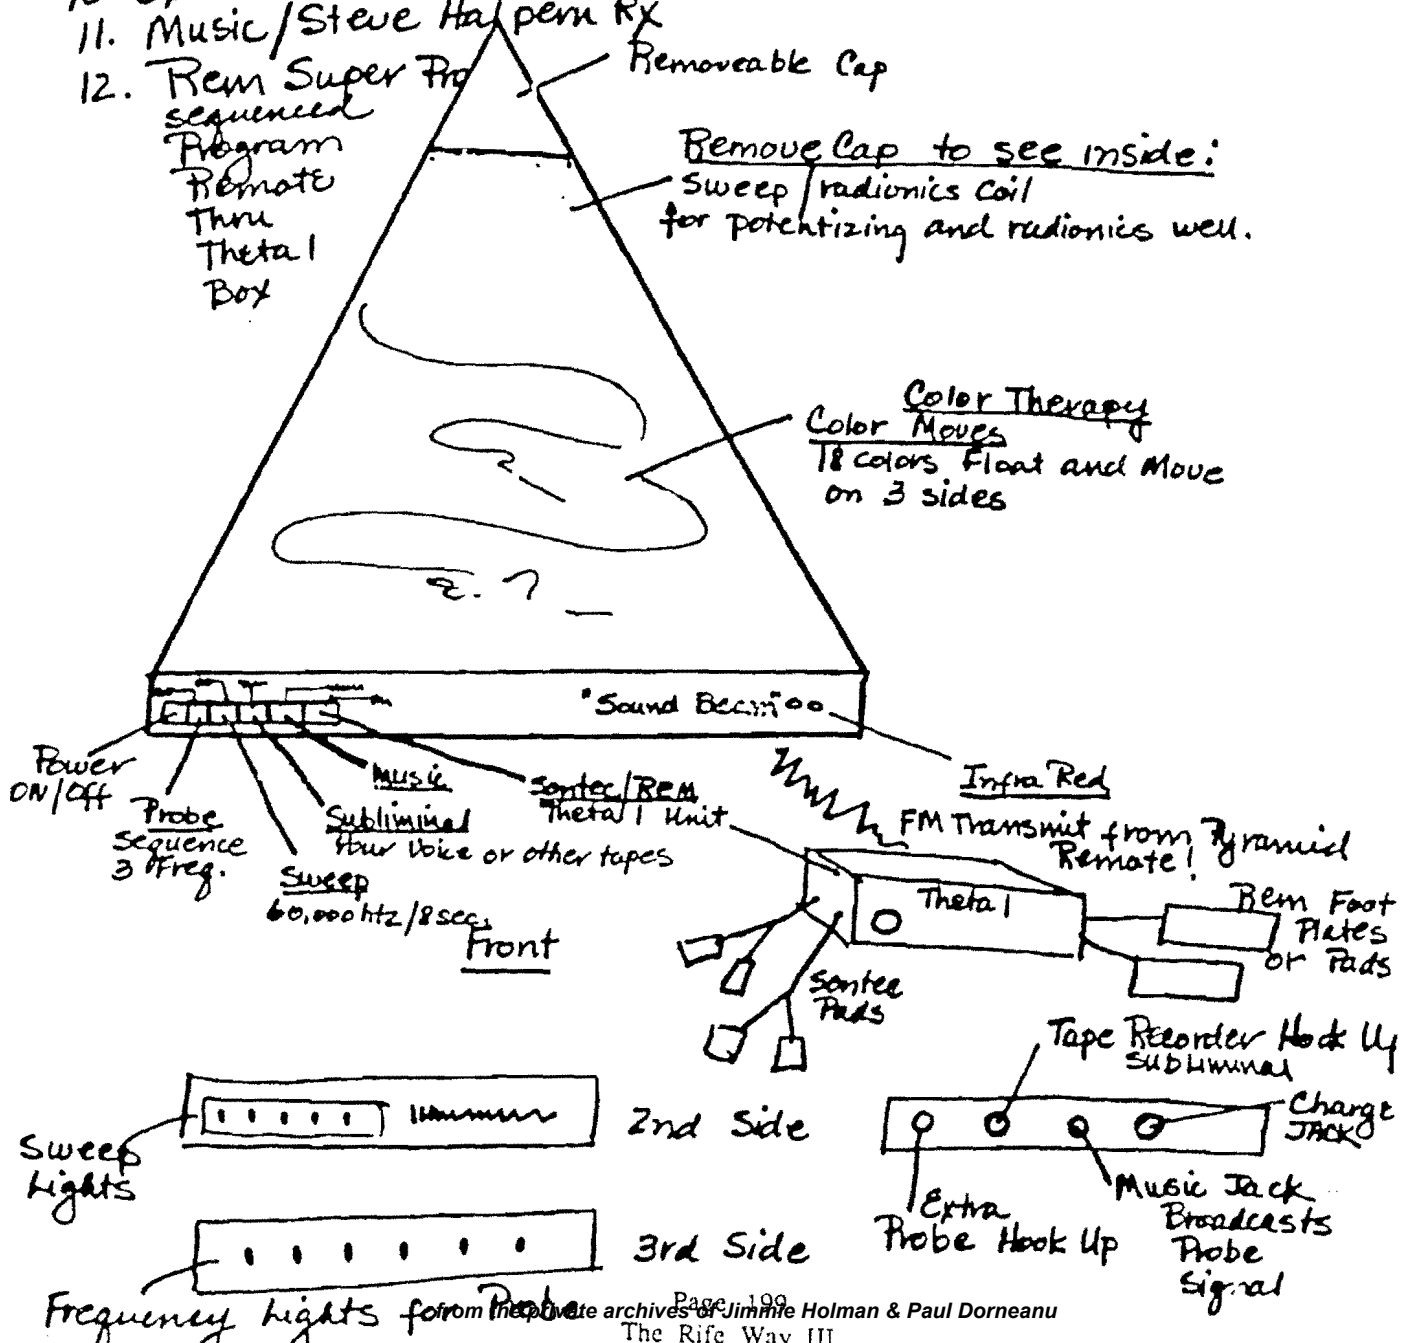 11. Music/Steve Halpern Rx
12. Rem Super Pro
sequenced
Program
Remote
Thru
Theta 1
Box
Removeable Cap
Remove Cap to see inside:
Sweep/radionics coil
for potentizing and radionics well.
Color Therapy
Color Moves
18 colors Float and Move
on 3 sides
"Sound Beam"
Power
ON/Off
Probe
Sequence
3 Freq.
Sweep
60,000 htz/8 sec.
Subliminal
Your Voice or other tapes
Music
Sontec/REM
Theta 1 Unit
Front
Infra Red
FM Transmit from Pyramid
Remote!
Theta 1
Rem Foot
Plates
or Pads
Sontec
Pads
Tape Recorder Hook Up
Subliminal
Charge
JACK
Music Jack
Broadcasts
Probe
Signal
Extra
Probe Hook Up
Sweep
Lights
2nd Side
3rd Side
Frequency Lights for Probe
Page 199
from the private archives of Jimmie Holman & Paul Dorneanu
The Rife Way III